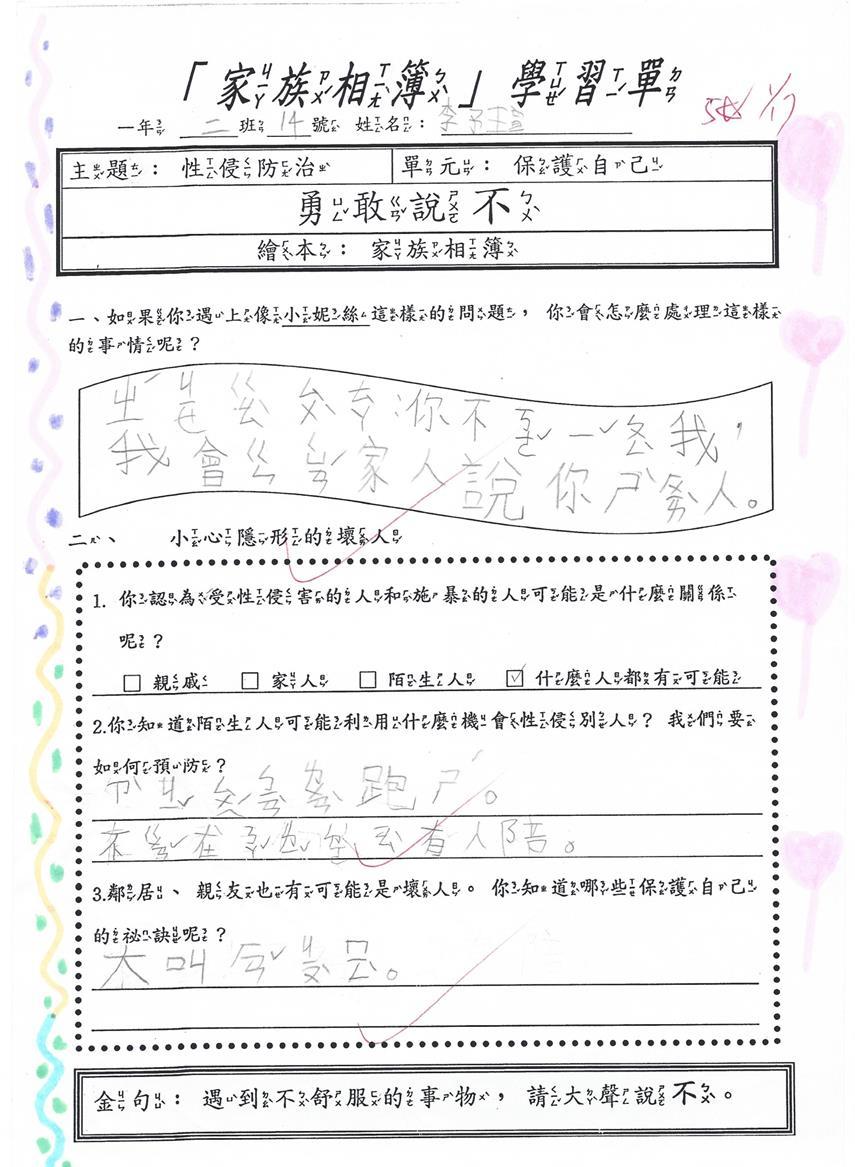 「家族相簿」學習單
一年 二 班 14 號 姓名：李
主題：性侵防治 單元：保護自己
勇敢說不
繪本：家族相簿
一、如果你遇上像小妮絲這樣的問題，你會怎麼處理這樣
的事情呢？
你不 我，
我會 家人說你 人。
二、 小心隱形的壞人
1. 你認為受性侵害的人和施暴的人可能是什麼關係
呢？
□親戚 □家人 □陌生人 ☑什麼人都有可能
2.你知道陌生人可能利用什麼機會性侵別人？我們要
如何預防？
跑ㄕˊ。
在 有人陪。
3.鄰居、親友也有可能是壞人。你知道哪些保護自己
的祕訣呢？
大叫 。
金句：遇到不舒服的事物，請大聲說不。